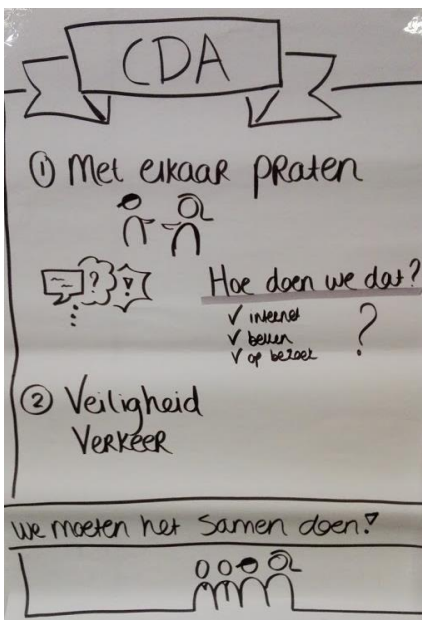 CDA
① Met elkaar praten
? !
Hoe doen we dat?
✓ internet
✓ bellen
✓ op bezoek
?
② Veiligheid
Verkeer
we moeten het samen doen!